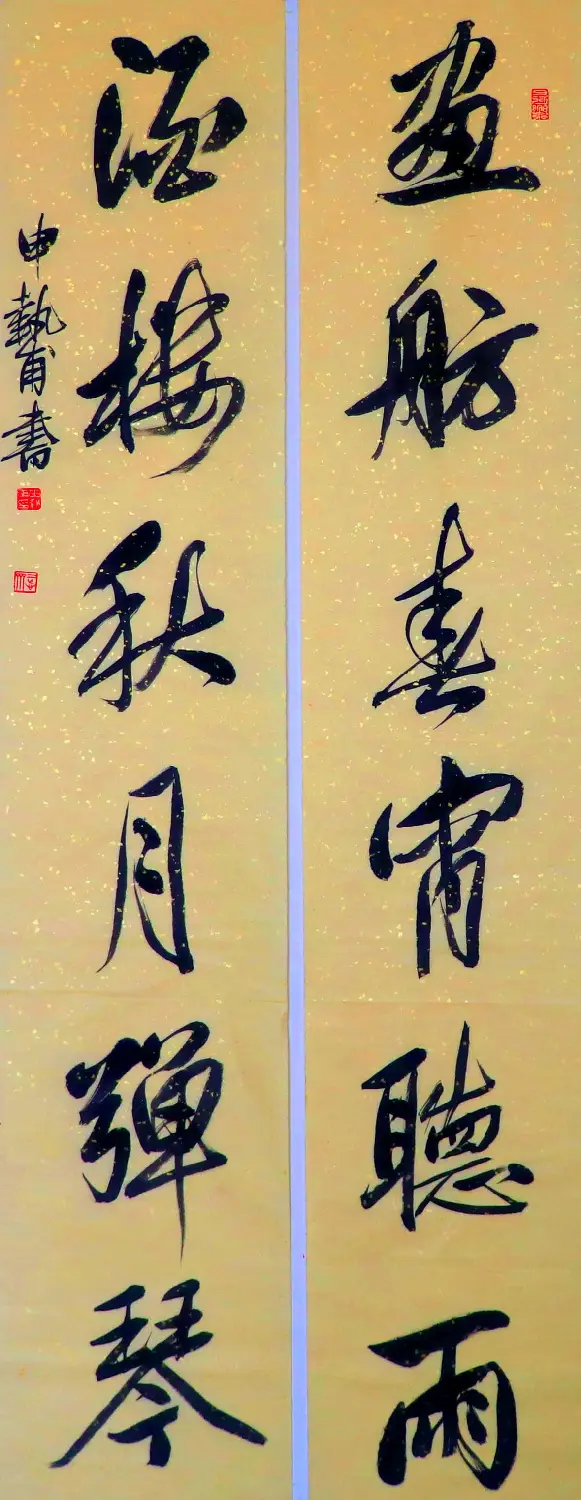 畫舫春宵聽雨
酒樓秋月彈琴
申執甫書